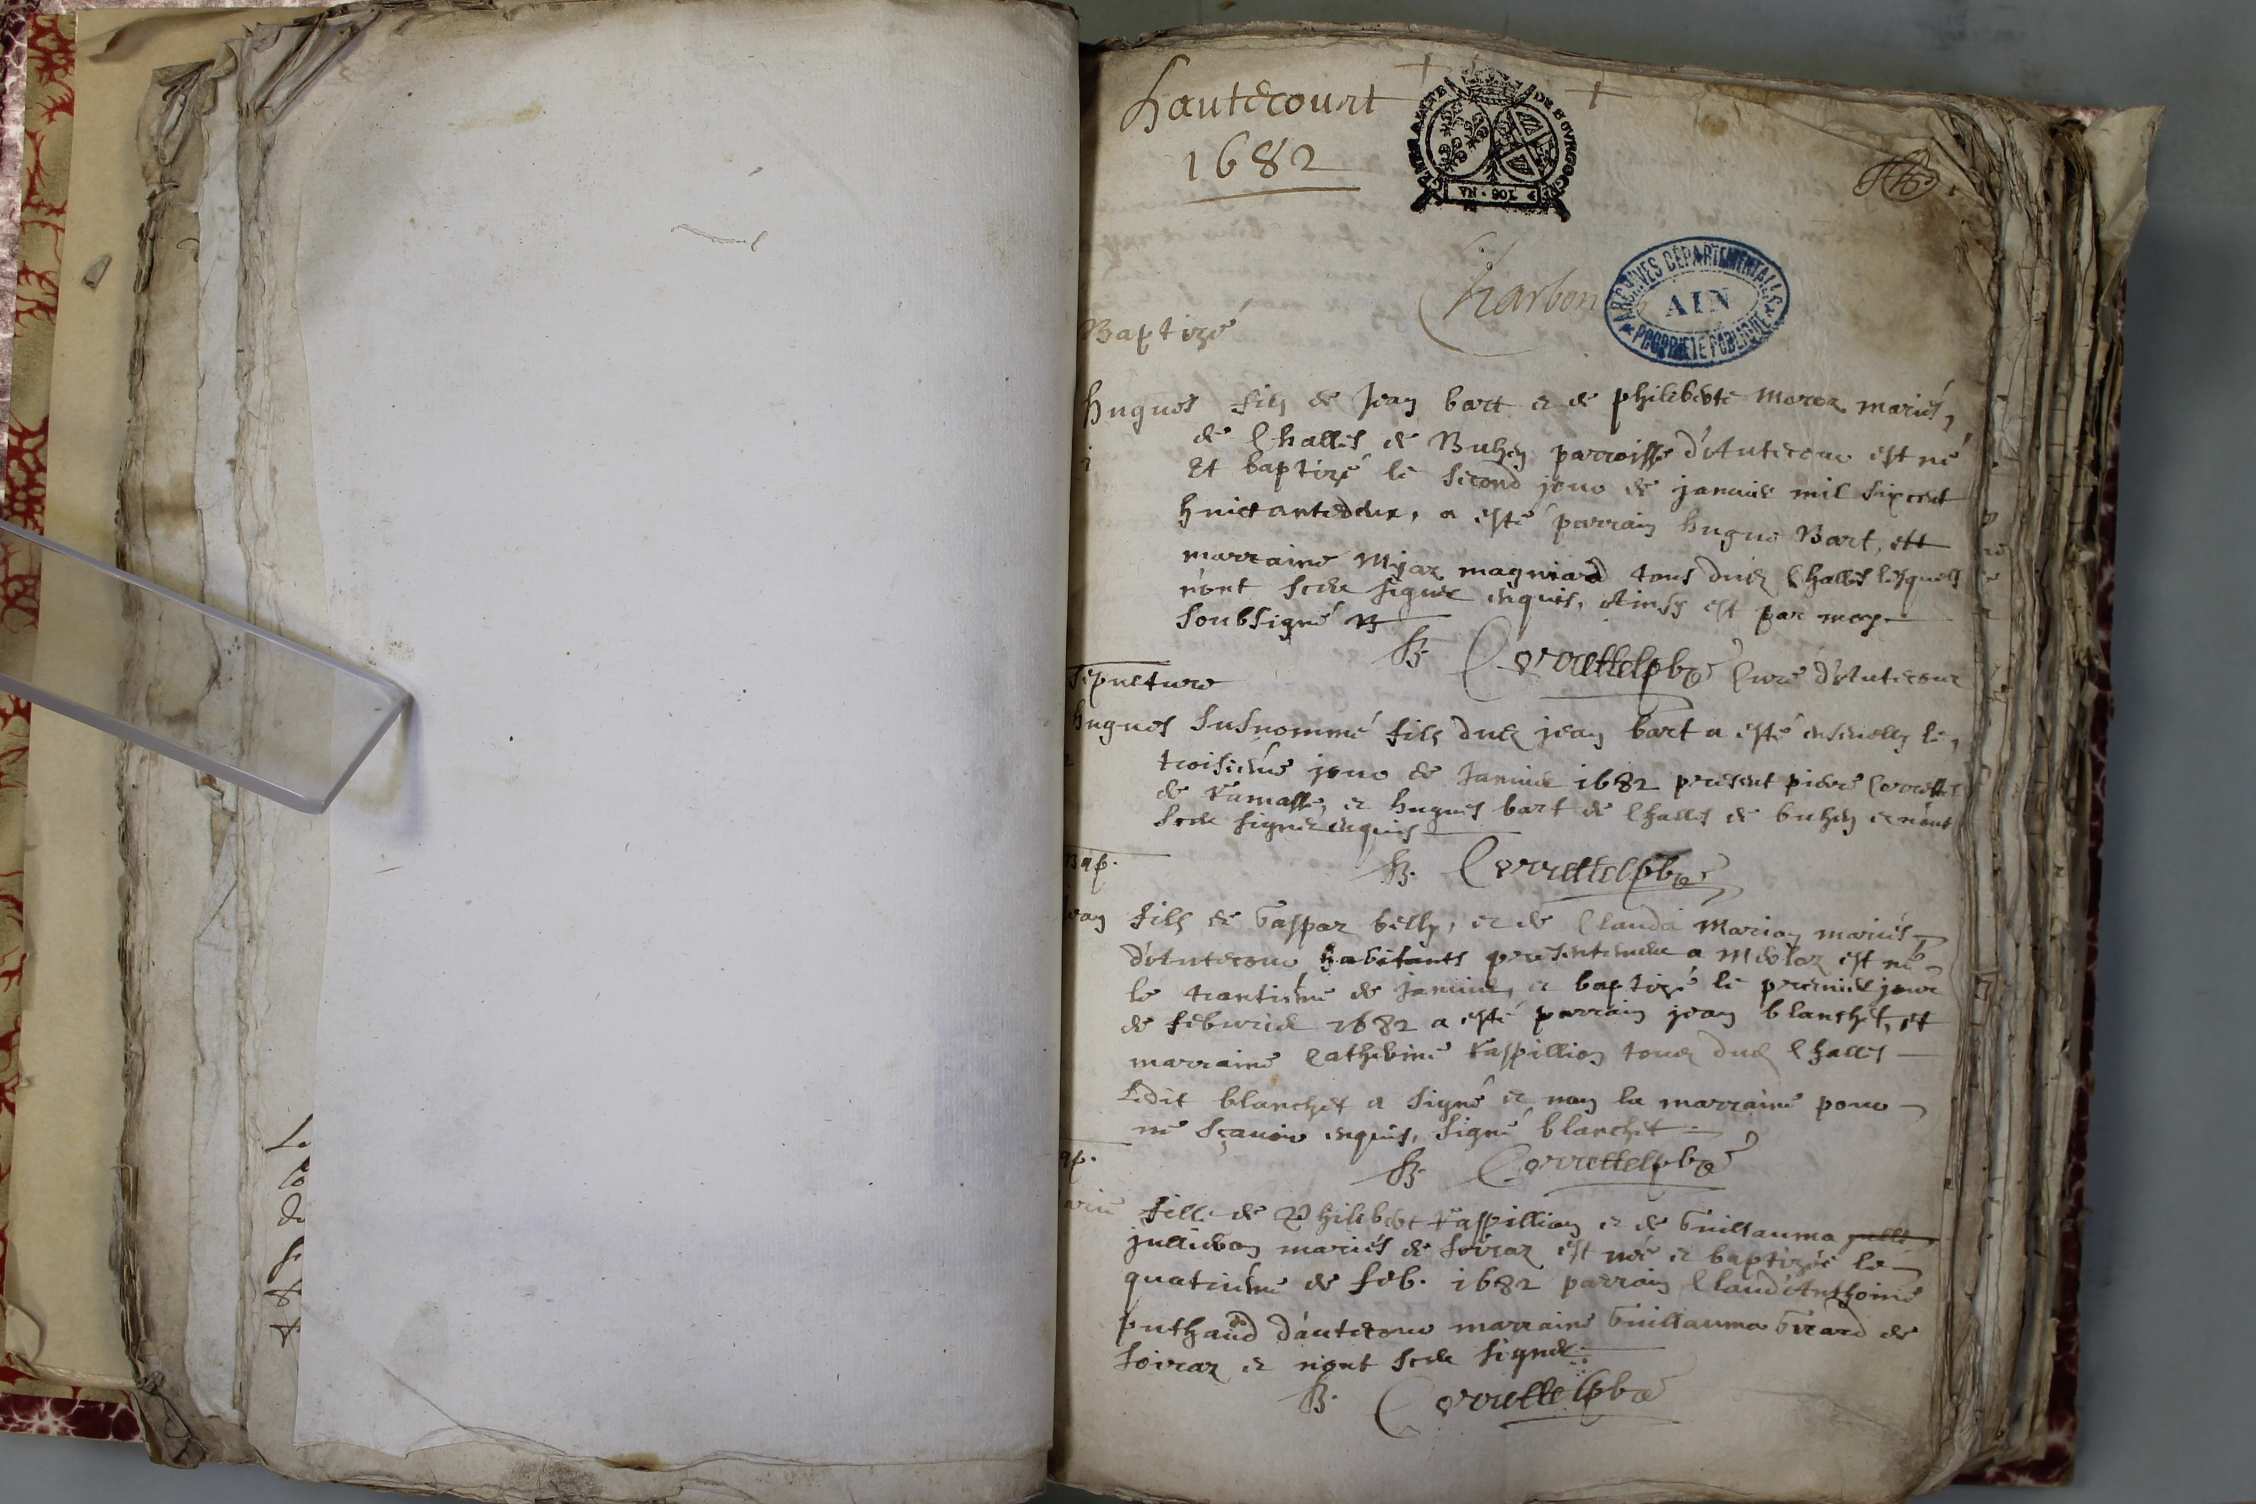 hautecourt
1682
GENERALITE DE BOURGOGNE
Charbon
ARCHIVES DÉPARTEMENTALES
AIN
PROPRIÉTÉ PUBLIQUE
Baptizé
hugues fils de Jean bart et de philiberte Moroz mariés,
de Challes de Buhen parroisse d'Autecour est né
Et baptizé le second jour de janvier mil six cent
huictantedeux, a esté parrain hugue Bart, ett
marraine Myaz magniard tous dud Challes lesquels
n'ont sceu signer enquis, Ainsy est par moy
soubsigné
B. Correttel pbre Curé d'Autecour
Sepulture
hugues susnommé fils dud jean bart a esté ensevelly le,
2
troisiéme jour de Janvier 1682 present pierre Correttel
de Ramasse, et hugues bart de Challes de buhen et n'ont
sceu signer enquis
Bap.
B. Correttel pbre
Jean fils de Gaspar belly, et de Clauda Marion mariés
d'Autecour habitants presentement a Merloz est né
le trantiéme de Janvier, et baptizé le premier jour
de febvrier 1682 a esté parrain jean blanchet, et
marraine Catherine Raspillion tous dud Challes
Ledit blanchet a signé et non la marraine pour
ne sçavoir enquis, signé blanchet
B. Correttel pbre
fille de Philibert Raspillion et de Guillauma
jullieron mariés de Soiraz est née et baptizée le
quatriéme de feb. 1682 parrain Claud'Anthoine
puthaud d'autecour marraine Guillauma Girard de
Soiraz et n'ont sceu signer
B. Correttel pbre